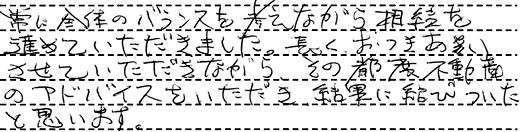 常に全体のバランスを考えながら相続を
進めていただきました。長くおつきあい
させていただきながら、その都度不動産
のアドバイスをいただき結果に結びついた
と思います。